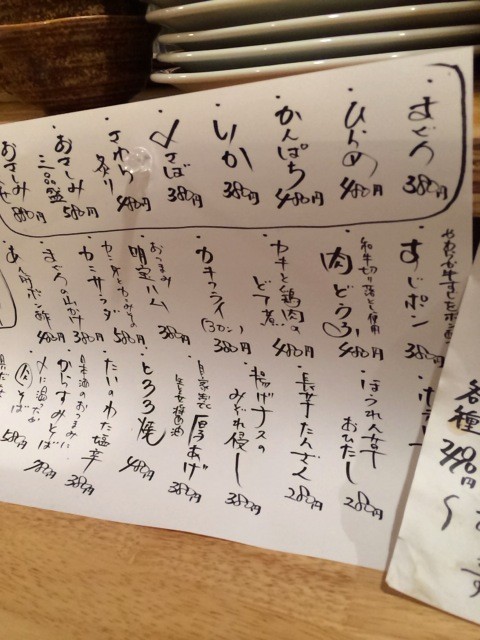 まぐろ 380円
ひらめ 480円
かんぱち 480円
いか 380円
〆さば 380円
さわら炙り 480円
おさしみ三品盛 580円
おさしみ
880円
すじポン 380円
和牛切り落とし使用
肉どうふ 480円
カキと鶏肉のどて煮 480円
カキフライ(3カン) 380円
おつまみ
明宝ハム 380円
580円
カニサラダ 380円
まぐろの山かけ 480円
あん肝ポン酢
ほうれん草おひたし 280円
長芋たんざく 280円
揚げナスのみぞれ浸し 380円
自家製
生姜醤油
厚あげ 380円
とろろ焼 480円
たいのわた塩辛 380円
日本酒のおつまみに
からすみそば 780円
〆に温かい
肉そば 580円
各種